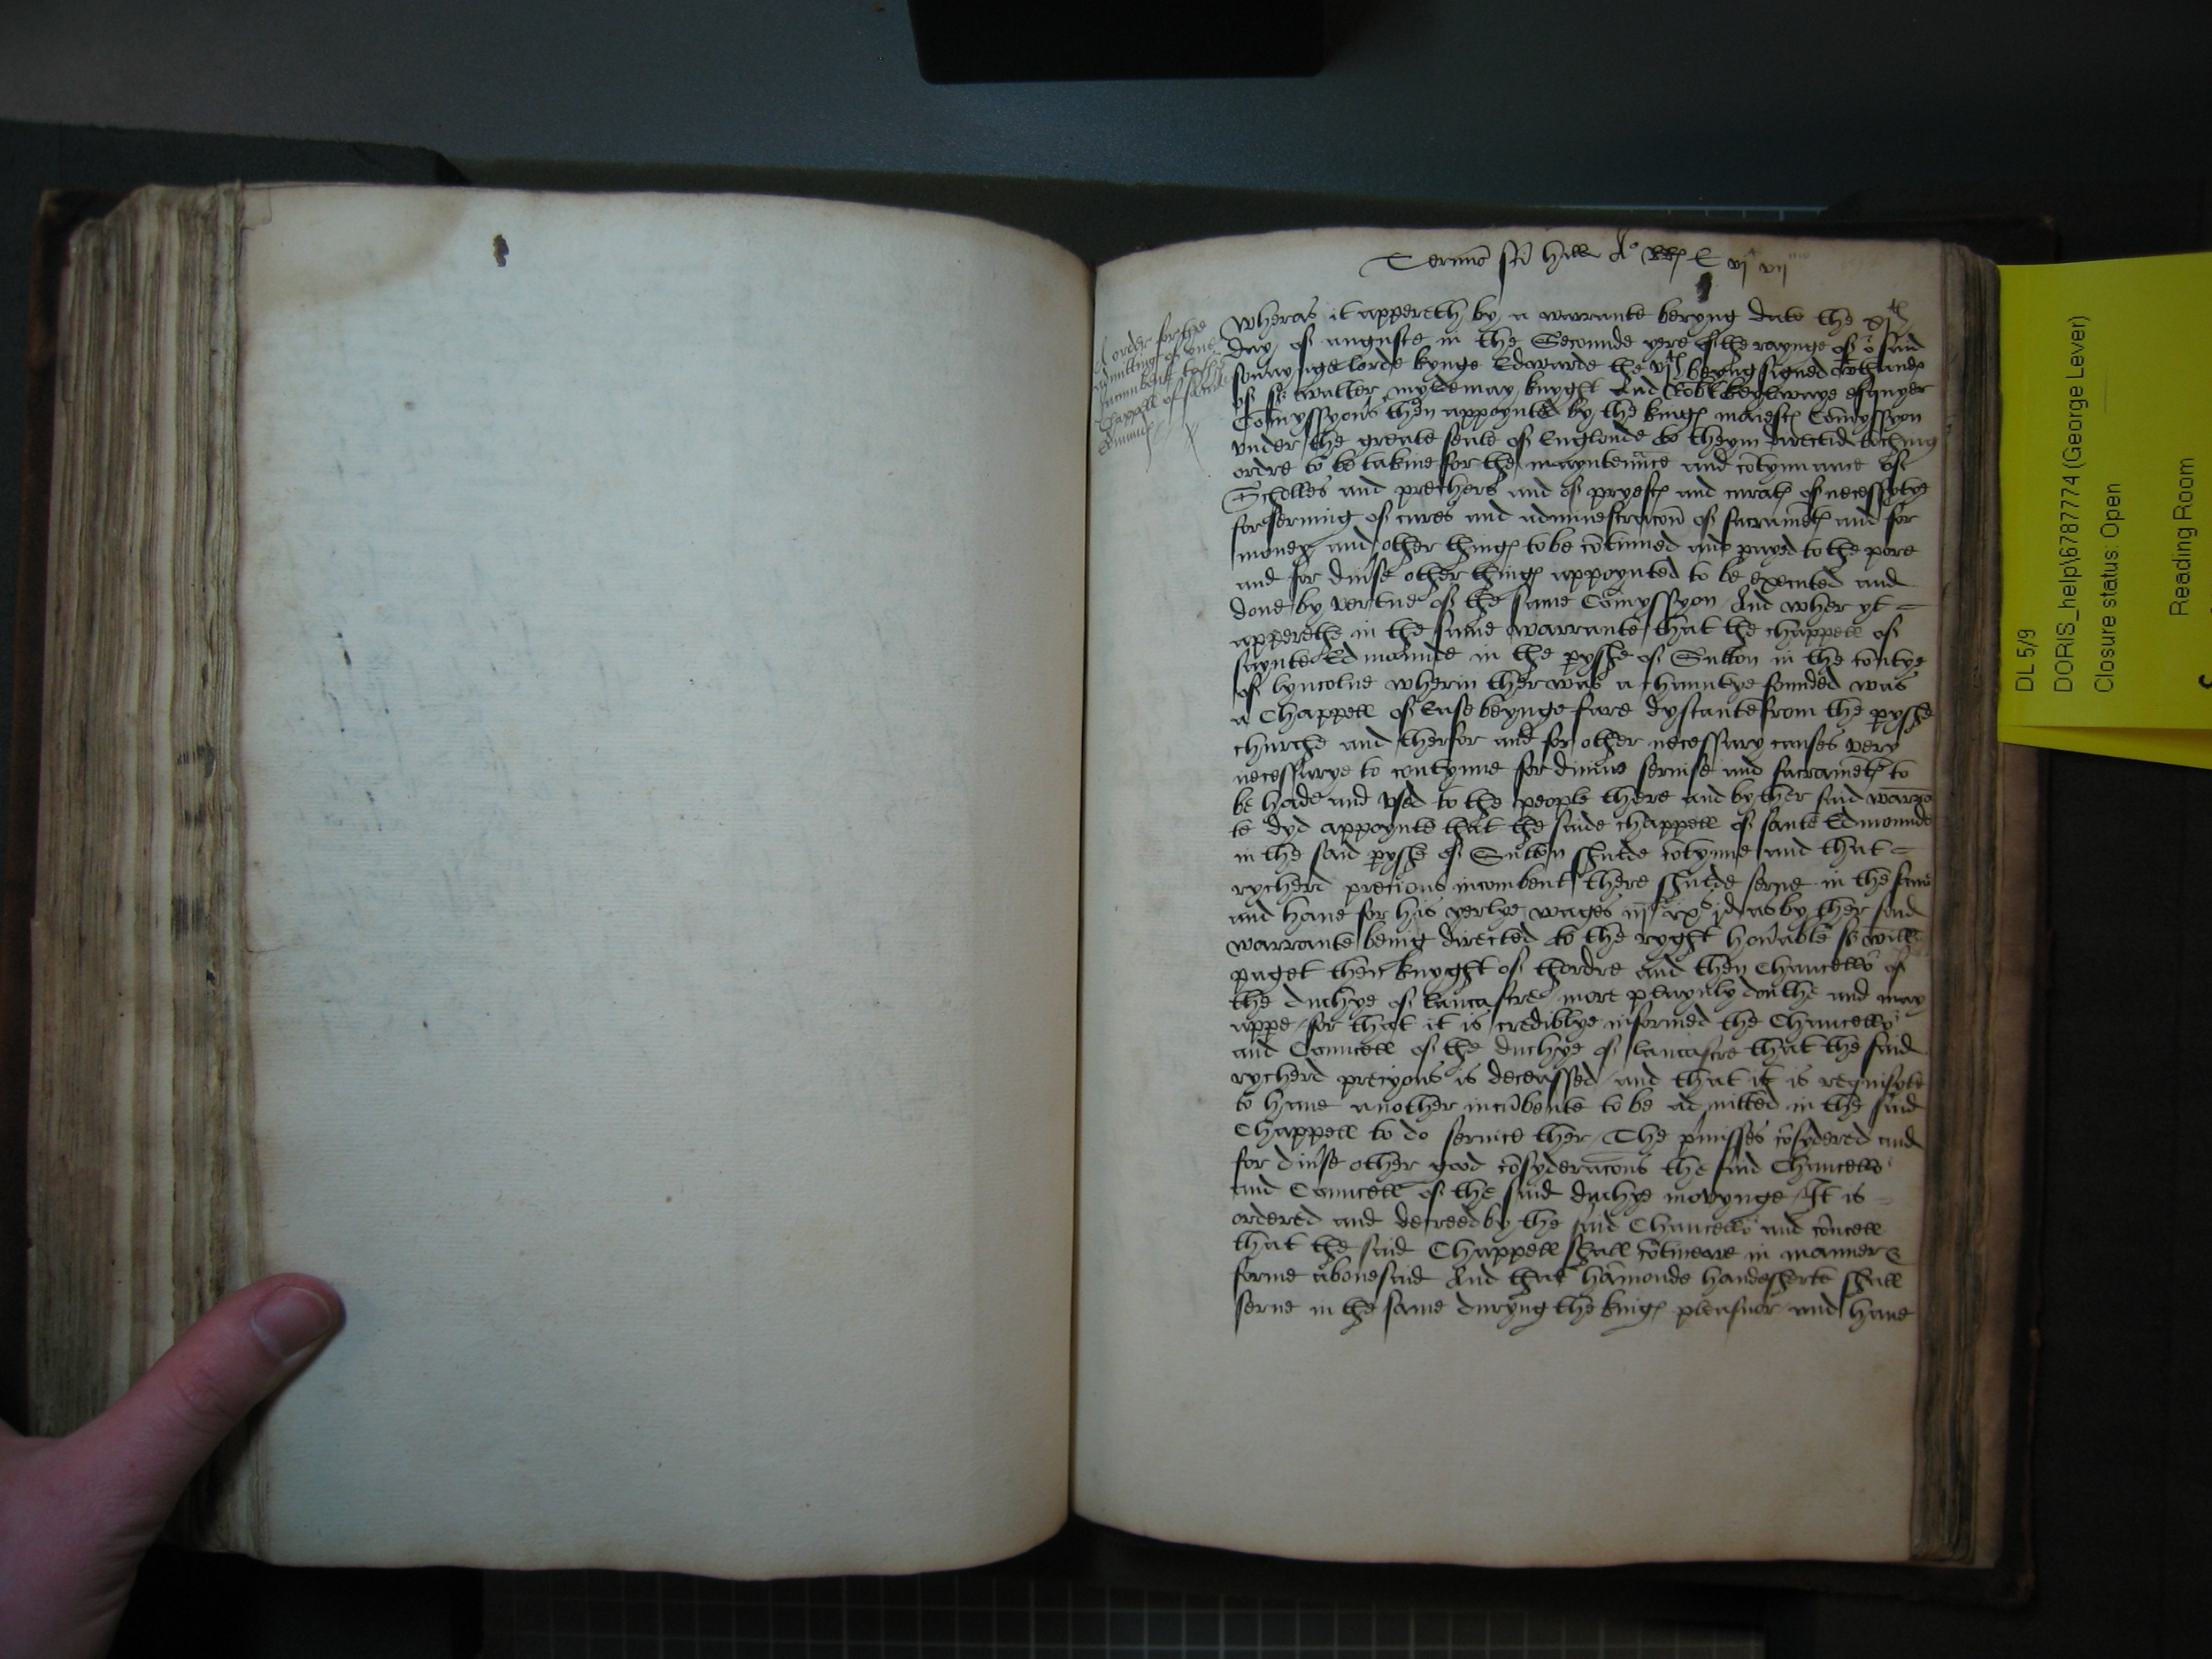 Termio sci Hill Ao RRs E vjti vijmo
A order for the
admitting of one
Incumbent to the
Chappell of sainte
Edmund
Wheras it appereth by a warrante beryng date the xjth
day of auguste in the Seconnde yere of the raynge of or said
souaynge lorde kynge Edwarde the vjth beyng signed wt hands
of sr walter myldemay knyght And Robt keylwaye esquyer
Comyssyons then appoynted by the kings maiests Comyssyon
vnder the greate seale of Englonde to theym directid toching
ordre to be takine for the mayntennce and cotynuance of
Scholles and prechers and of pryests and curats of necessytye
for serving of cures and admynestracon of sacramets and for
money and other things to be cotinued and payed to the pore
and for diuse other things appoynted to be executed and
done by vertue of the same Comyssyon And wher yt =
apperethe in the same warrante that the chappell of
saynte Edmounde in the pyshe of Sutton in the contye
of lyncolne wherin ther was a chauntye founded was
a Chappell of Ease beynge fare dystante from the pyshe
churche and therfor and for other necessary causes very
necessarye to contynue for diuine seruise and sacramets to
be hade and vsed to the people there and by ther said warra
te dyd appoynte that the saide chappell of sante Edmounde
in the said pyshe of Sutton shulde cotynue and that =
rycherd precious incombent there shulde serue in the same
and haue for his yerlye wages as by ther said
warrante being directed to the ryght honable sr willm
paget then knyght of thordre and then Chancellor of
the duchye of lancastre more playnly dothe and may
appe / for that it is crediblye informed the Chancellor
and Councell of the duchye of lancastre that the said
rycherd precyous is deceassed / and that it is requisyte
to haue another incubente to be admitted in the said
Chappell to do seruice ther / The pmisses cosydered and
for diuse other good cosyderacons the said Chancellor
and Councell of the said duchye movynge / It is =
ordered and decreed by the said Chancellor and concell
that the said Chappell shall cotinewe in manner &
forme abouesaid And that hamonde shall
serue in the same duryng the kings pleasuor and haue
DL 5/9
DORIS_help\6787774 (George Lever)
Closure status: Open
Reading Room